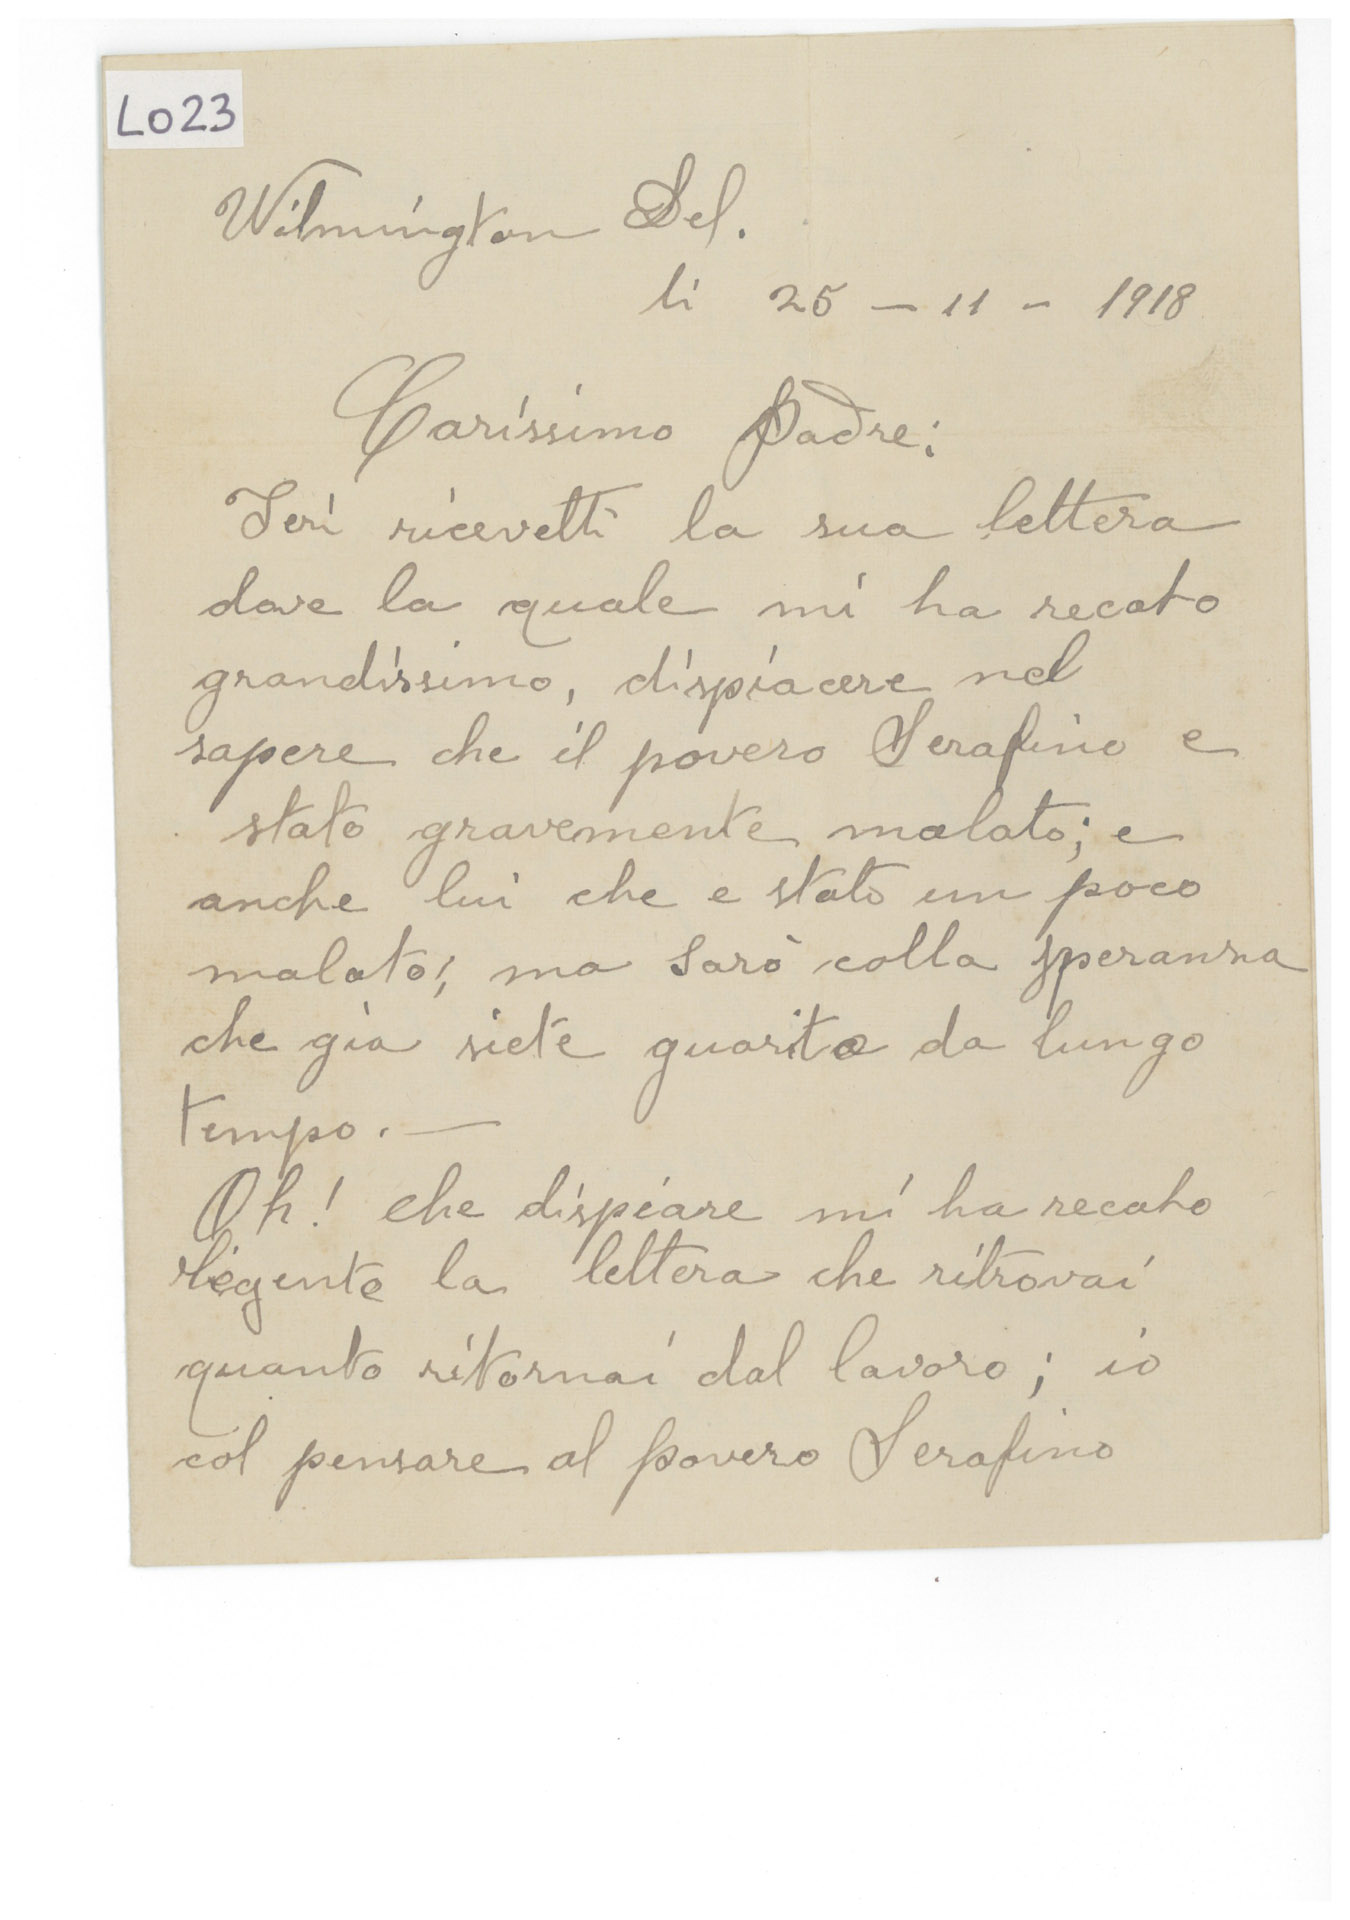 L023
Wilmington Del.
li 25 - 11 - 1918
Carissimo Padre:
Ieri ricevetti la sua lettera
dove la quale mi ha recato
grandissimo, dispiacere nel
sapere che il povero Serafino e
stato gravemente malato; e
anche lui che e stato un poco
malato; ma sarò colla speranza
che già siete guarito da lungo
tempo. —
Oh! che dispiare mi ha recato
legente la lettera che ritrovai
quanto ritornai dal lavoro; io
col pensare al povero Serafino